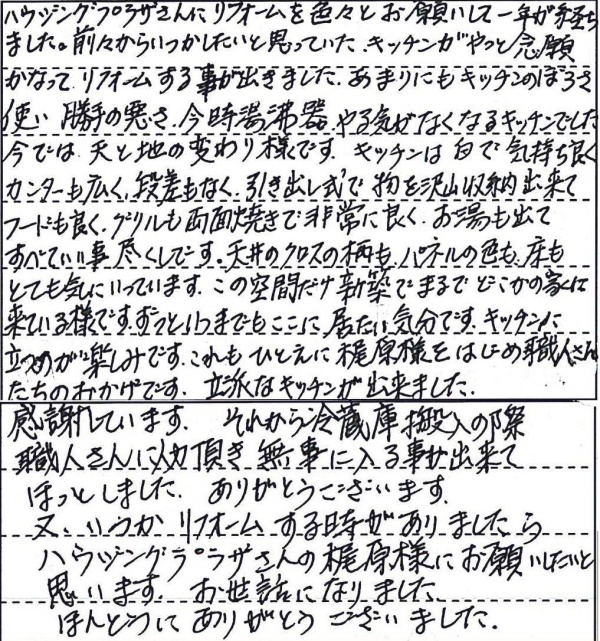 ハウジングプラザさんにリフォームを色々とお願いして一年が経ち
ました。前々からいつかしたいと思っていた、キッチンがやっと念願
かなって、リフォームする事が出きました。あまりにもキッチンのぼろさ
使い勝手の悪さ、今時湯沸器、やる気がなくなるキッチンでした
今では、天と地の変わり様です。キッチンは白で気持ち良く
カンターも広く、段差もなく、引き出し式で物を沢山収納出来て
フードも良く、グリルも両面焼きで非常に良く、お湯も出て
すべていい事尽くしです。天井のクロスの柄も、パネルの色も、床も
とても気にいっています。この空間だけ新築でまるでどこかの家に
来ている様です。ずっといつまでもここに居たい気分です。キッチンに
立つのが楽しみです。これもひとえに梶原様をはじめ職人さん
たちのおかげです。立派なキッチンが出来ました。
感謝しています。それから冷蔵庫搬入の際
職人さんに入れて頂き無事に入る事が出来て
ほっとしました。ありがとうございます。
又、いつかリフォームする時がありましたら
ハウジングプラザさんの梶原様にお願いしたいと
思います。お世話になりました
ほんとうにありがとうございました。